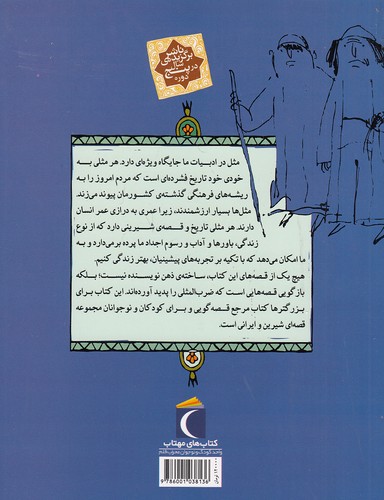 ناشر
برگزیده‌ی
سال
در پنج
دوره
مثل در ادبیات ما جایگاه ویژه‌ای دارد. هر مثلی به
خودی خود تاریخ فشرده‌ای است که مردم امروز را به
ریشه‌های فرهنگی گذشته‌ی کشورمان پیوند می‌زند.
مثل‌ها بسیار ارزشمندند، زیرا عمری به درازی عمر انسان
دارند. هر مثلی تاریخ و قصه‌ی شیرینی دارد که از نوع
زندگی، باورها و آداب و رسوم اجداد ما پرده برمی‌دارد و به
ما امکان می‌دهد که با تکیه بر تجربه‌های پیشینیان، بهتر زندگی کنیم.
هیچ یک از قصه‌های این کتاب، ساخته‌ی ذهن نویسنده نیست؛ بلکه
بازگویی قصه‌هایی است که ضرب‌المثلی را پدید آورده‌اند. این کتاب برای
بزرگترها کتاب مرجع قصه‌گویی و برای کودکان و نوجوانان مجموعه
قصه‌ای شیرین و ایرانی است.
کتاب‌های مهتاب
واحد کودک و نوجوان محراب قلم
9 786001 038136